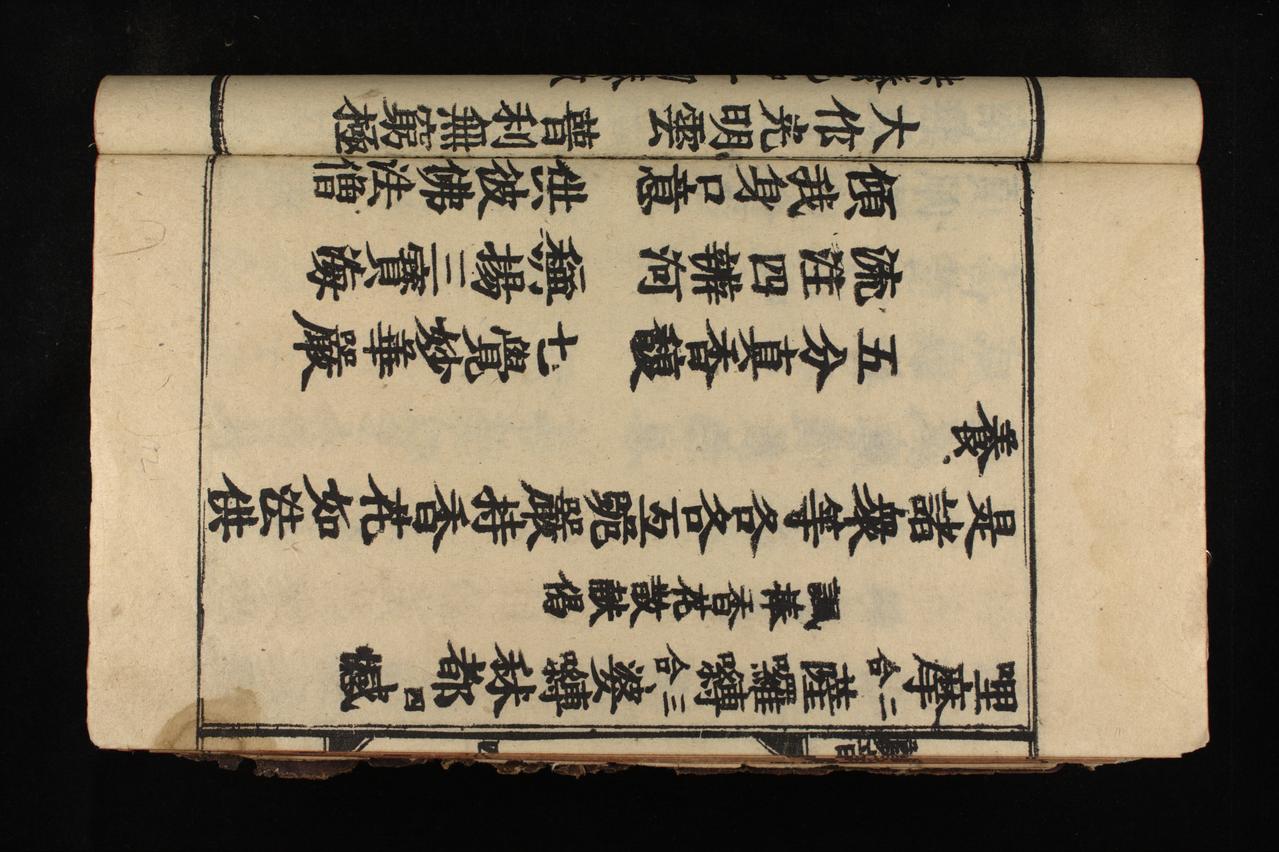 哩摩二合薩囉嚩三合婆嚩秫都四憾
諷奉香花散獻偈
是諸衆等各各互跪嚴持香花如法供
養
五分真香馥　七覺妙華嚴
流注四辯河　稱揚三寶海
傾我身口意　供彼佛法僧
大作光明雲　普利無窮極